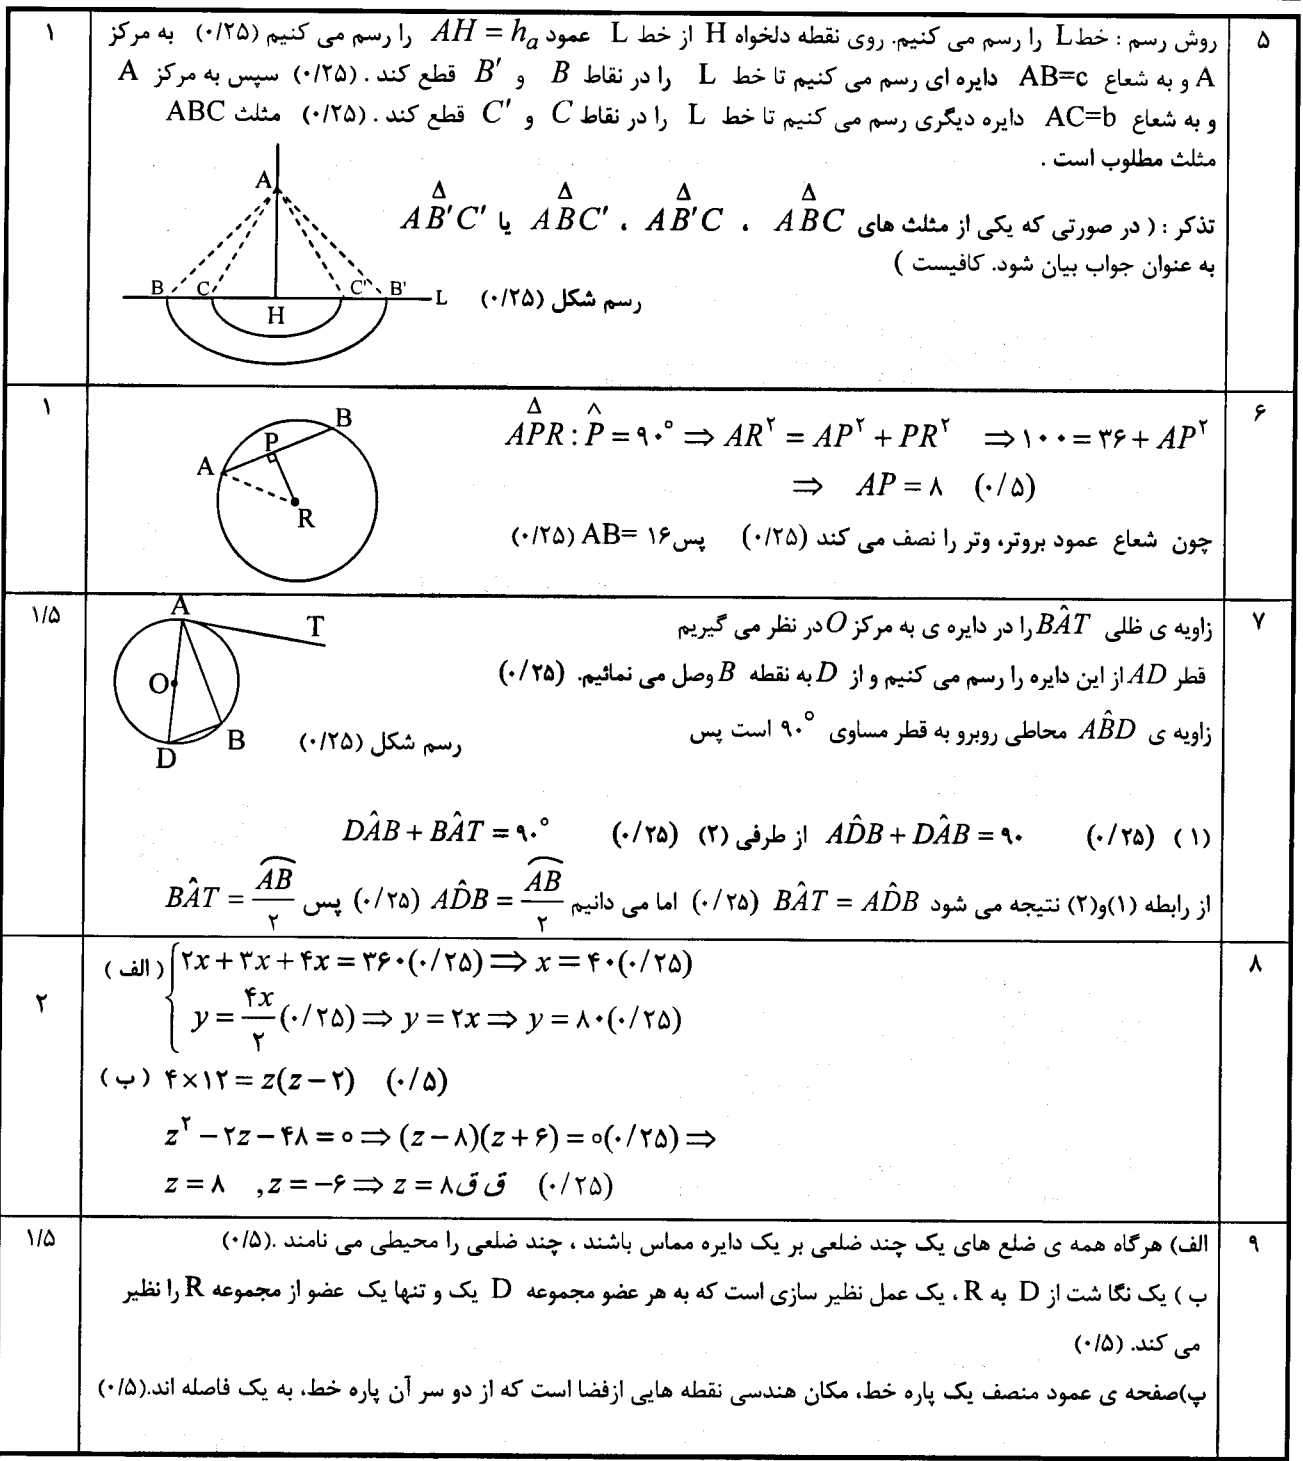 ۵
۱
روش رسم : خط L را رسم می کنیم. روی نقطه دلخواه H از خط L عمود AH = hₐ را رسم می کنیم (۰/۲۵) به مرکز
A و به شعاع AB=c دایره ای رسم می کنیم تا خط L را در نقاط B و B′ قطع کند . (۰/۲۵) سپس به مرکز A
و به شعاع AC=b دایره دیگری رسم می کنیم تا خط L را در نقاط C و C′ قطع کند . (۰/۲۵) مثلث ABC
مثلث مطلوب است .
تذکر : ( در صورتی که یکی از مثلث های ABC^Δ ، AB′C^Δ ، ABC′^Δ یا AB′C′^Δ
به عنوان جواب بیان شود. کافیست )
رسم شکل (۰/۲۵)
A
B C H C' B' L
۶
۱
APR^Δ : P̂ = ۹۰° ⇒ AR² = AP² + PR² ⇒ ۱۰۰ = ۳۶ + AP²
⇒ AP = ۸ (۰/۵)
چون شعاع عمود بروتر، وتر را نصف می کند (۰/۲۵) پس AB= ۱۶ (۰/۲۵)
B
P
A
R
۷
۱/۵
زاویه ی ظلی BÂT را در دایره ی به مرکز O در نظر می گیریم
قطر AD از این دایره را رسم می کنیم و از D به نقطه B وصل می نمائیم. (۰/۲۵)
زاویه ی AB̂D محاطی روبرو به قطر مساوی ۹۰° است پس
رسم شکل (۰/۲۵)
A
T
O
B
D
(۱) (۰/۲۵) AD̂B + DÂB = ۹۰ از طرفی (۲) (۰/۲۵) DÂB + BÂT = ۹۰°
از رابطه (۱)و(۲) نتیجه می شود BÂT = AD̂B (۰/۲۵) اما می دانیم AD̂B = AB⌒/۲ (۰/۲۵) پس BÂT = AB⌒/۲
۸
۲
الف ) { ۲x + ۳x + ۴x = ۳۶۰ (۰/۲۵) ⇒ x = ۴۰ (۰/۲۵)
y = ۴x/۲ (۰/۲۵) ⇒ y = ۲x ⇒ y = ۸۰ (۰/۲۵)
ب ) ۴×۱۲ = z(z − ۲) (۰/۵)
z² − ۲z − ۴۸ = ۰ ⇒ (z − ۸)(z + ۶) = ۰ (۰/۲۵) ⇒
z = ۸ , z = −۶ ⇒ z = ۸ ق ق (۰/۲۵)
۹
۱/۵
الف) هرگاه همه ی ضلع های یک چند ضلعی بر یک دایره مماس باشند ، چند ضلعی را محیطی می نامند .(۰/۵)
ب ) یک نگا شت از D به R ، یک عمل نظیر سازی است که به هر عضو مجموعه D یک و تنها یک عضو از مجموعه R را نظیر
می کند. (۰/۵)
پ)صفحه ی عمود منصف یک پاره خط، مکان هندسی نقطه هایی ازفضا است که از دو سر آن پاره خط، به یک فاصله اند.(۰/۵)